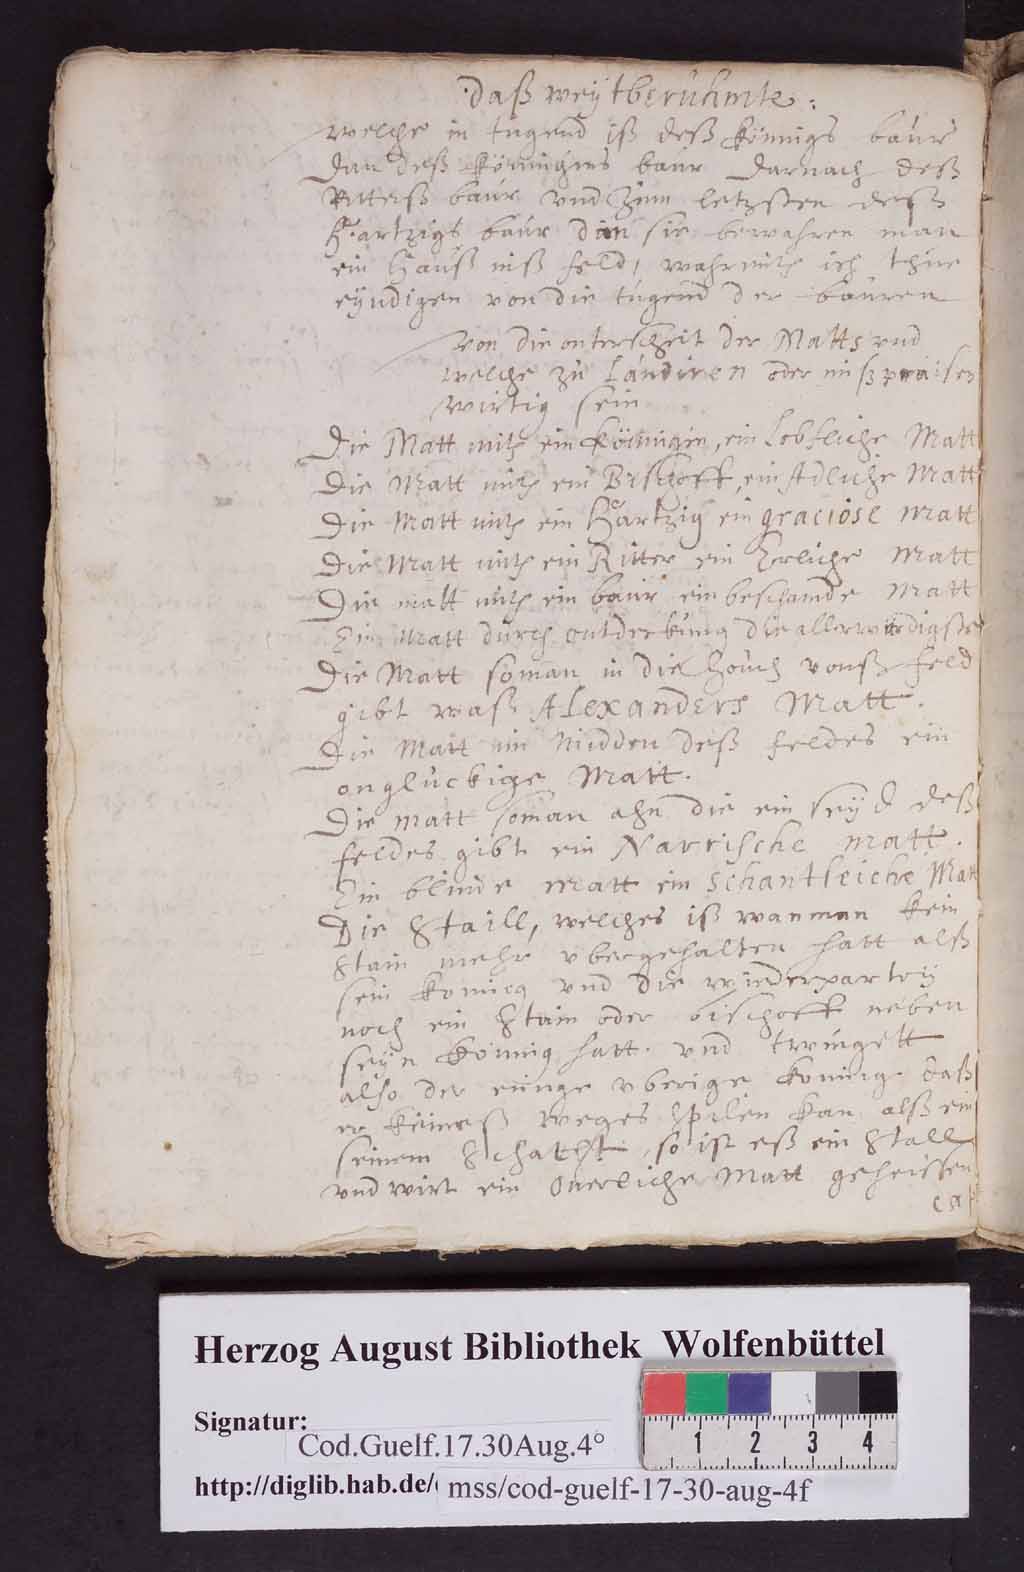 Daß weÿtberühmte:
welche in tugend iß deß königs baur
dan deß königins baur darnach deß
Ritterß baur und zum letzsten deß
Hartzigs baur dan sie bewahren man
ein Hauß niß feld, wahrmitz ich thue
eÿndigen von die tugend der bauren
Von die onterscheit der Matts und
welche zu laudiren oder mißpraisen
wirtig sein
Die Matt mitz ein königin, ein lobfliche Matt
Die Matt mitz ein Bischoff, ein Adliche Matt
Die Matt mitz ein Hartzig ein graciose Matt
Die Matt mitz ein Ritter ein herliche Matt
Die matt mitz ein baur ein beschamde Matt
Ein Matt durch ontdeckung die allerwirdigste
Die Matt soman in die houch vonß feld
gibt waß Alexanders Matt.
Die Matt im Midden deß feldes ein
onglückige Matt.
Die matt soman ahn die ein seÿd deß
feldes gibt ein Narrische matt.
Ein blinde matt ein schantleiche Matt
Die Staill, welches iß wanman kein
Stain mehr ubergehalten hatt alß
sein konicg und die wiederpartoÿ
noch ein Stain oder bischoff neben
seÿn könnig hatt. und twingett
also der einige uberige konicg daß
er keineß weges spilen kan alß ein
seinem Schatcht, so ist eß ein Stall
und wirt ein onerliche Matt geheissen
Cap
Herzog August Bibliothek Wolfenbüttel
Signatur:
Cod.Guelf.17.30Aug.4°
http://diglib.hab.de/
mss/cod-guelf-17-30-aug-4f
1 2 3 4